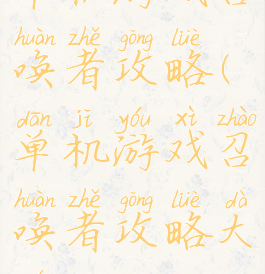 huàn zhě gōng lüè
唤者攻略(
dān jī yóu xì zhào
单机游戏召
huàn zhě gōng lüè dà
唤者攻略大